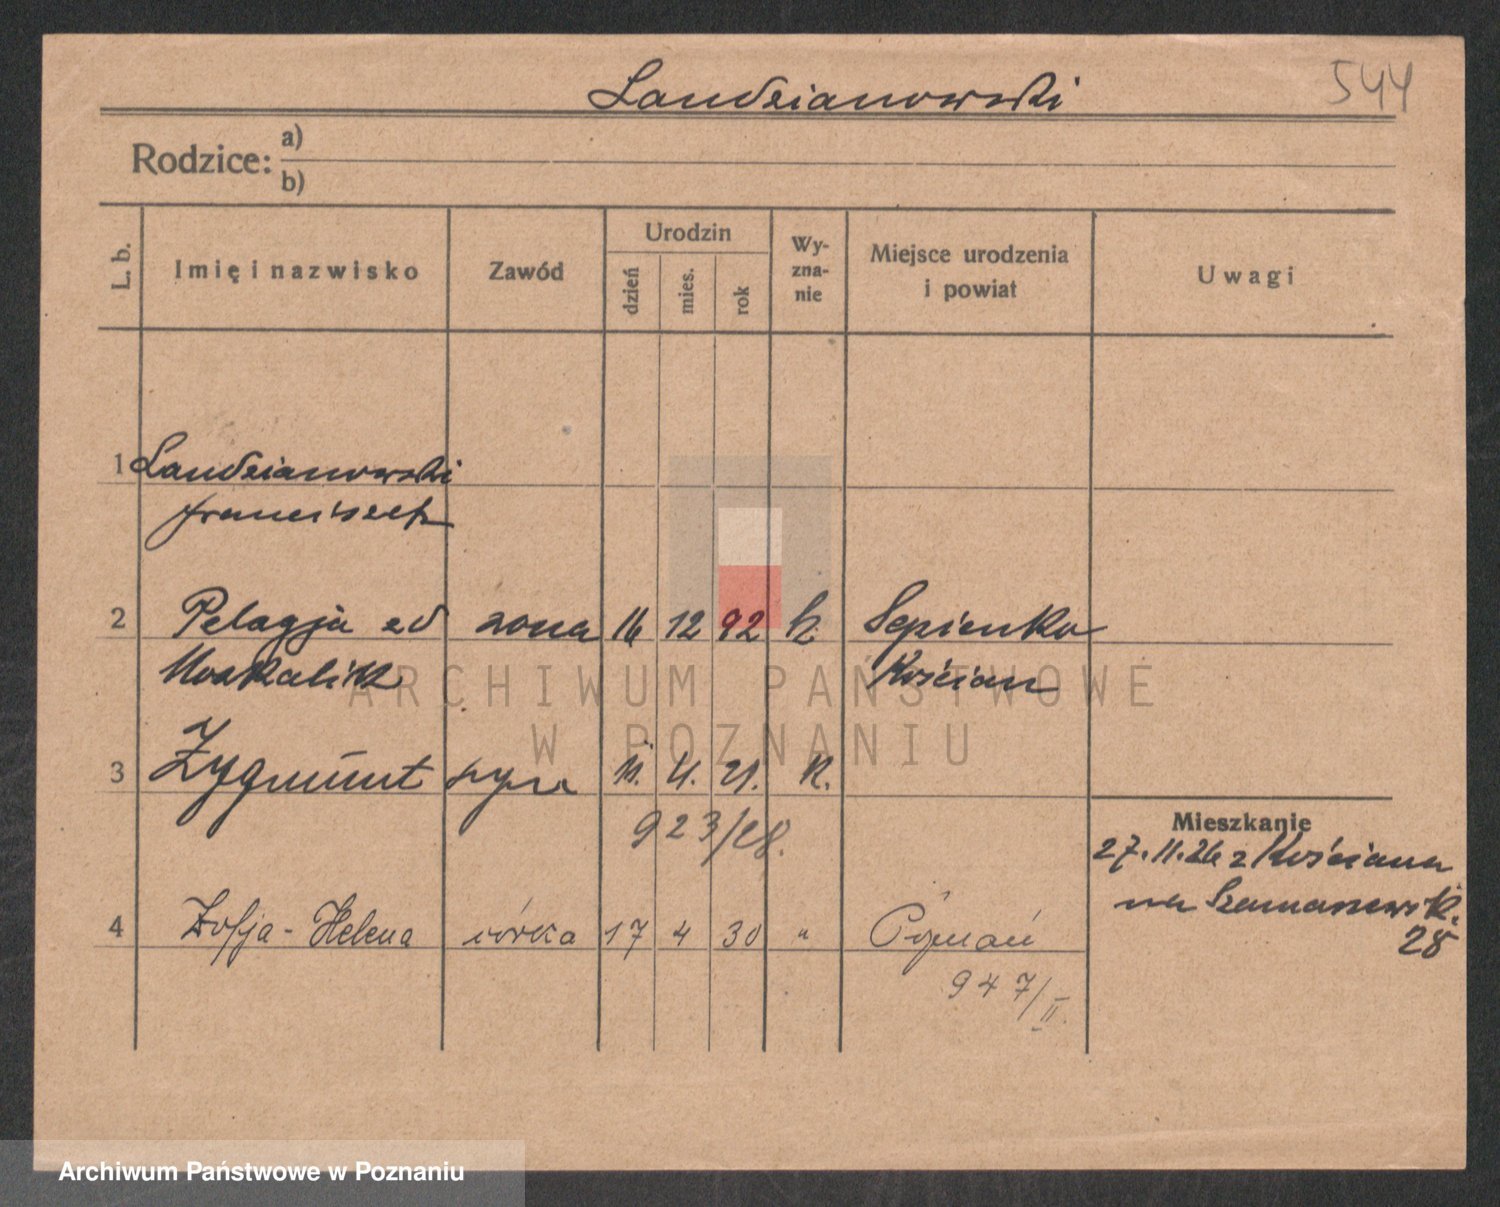 Landzianowski
544
Rodzice: a)
b)
L. b.
Imię i nazwisko
Zawód
Urodzin
dzień
mies.
rok
Wy-
zna-
nie
Miejsce urodzenia
i powiat
Uwagi
1 Landzianowski
Franciszek
2 Pelagja zd żona 16 12 92 k. Sepienko
Moskalik Kościan
3 Zygmunt syn 11. 4. 21. k.
923/28.
Mieszkanie
27.11.26 z Kościana
na Szamarzewsk.
28
4 Zofja-Helena córka 17 4 30 " Poznań
947/II
ARCHIWUM PAŃSTWOWE
W POZNANIU
Archiwum Państwowe w Poznaniu